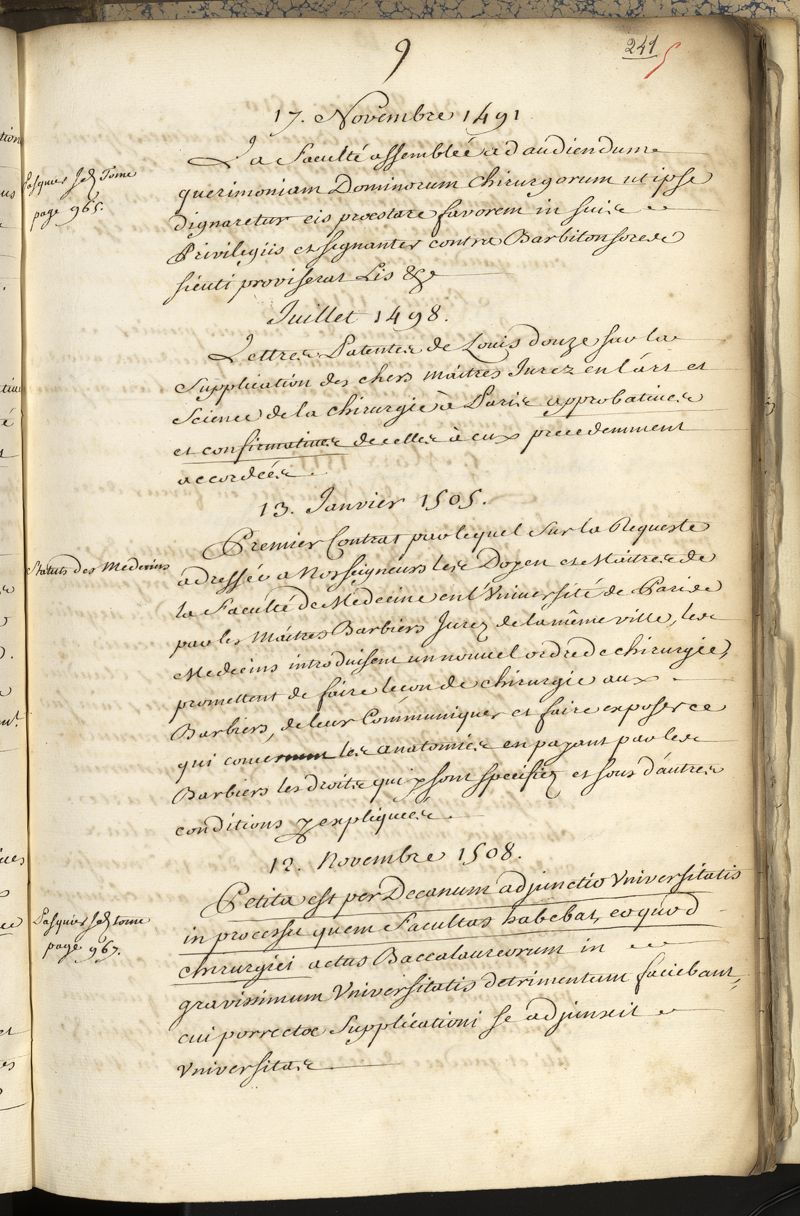 9
241
5
17. Novembre 1491
La Faculté assemblée ad audiendum
Pasquier Id. Tome
page 965.
querimoniam Dominorum chirurgorum ut ipse
dignaretur eis proestare favorem in suis
Privilegiis et signanter contra Barbitonsores
sicuti proviserat Lis &c
Juillet 1498.
Lettres Patentes de Louis douze sur la
Supplication des chers maitres Jurez en l'art et
Science de la chirurgie à Paris approbatives
et confirmatives de celles à eux precedemment
accordées.
13. Janvier 1505.
Premier Contrat par lequel sur la Requeste
Statuts des Medecins
adressée a Nosseigneurs les Doyen et Maitres de
la Faculté de Medecine en l'Université de Paris
par les Maitres Barbiers Jurez de la même ville, les
Medecins introduisent un nouvel ordre de chirurgie,
promettent de faire leçon de chirurgie aux
Barbiers, de leur Communiquer et faire exposer ce
qui concernent les anatomies en payant par les
Barbiers les droits qui y sont specifiez et sous d'autres
conditions y expliquées.
12. Novembre 1508.
Petita est per Decanum adjunctio Universitatis
Pasquier Id. tome
page 967.
in processu quem Facultas habebat, eo quod
chirurgici actus Baccalaureorum in
gravissimum Universitatis detrimentum faciebant,
cui porrectoe Supplicationi se adjunxit
Universitas